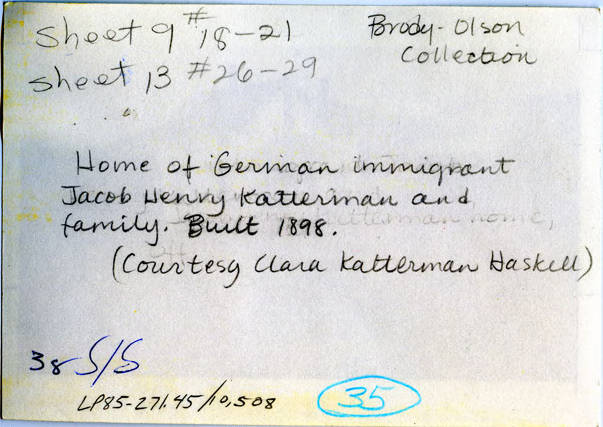 Sheet 9 #18-21
Brody-Olson
Collection
sheet 13 #26-29
Home of German immigrant
Jacob Henry Katterman and
family. Built 1898.
(Courtesy Clara Katterman Haskell)
38 S/S
LP85-271.45/10,508
35